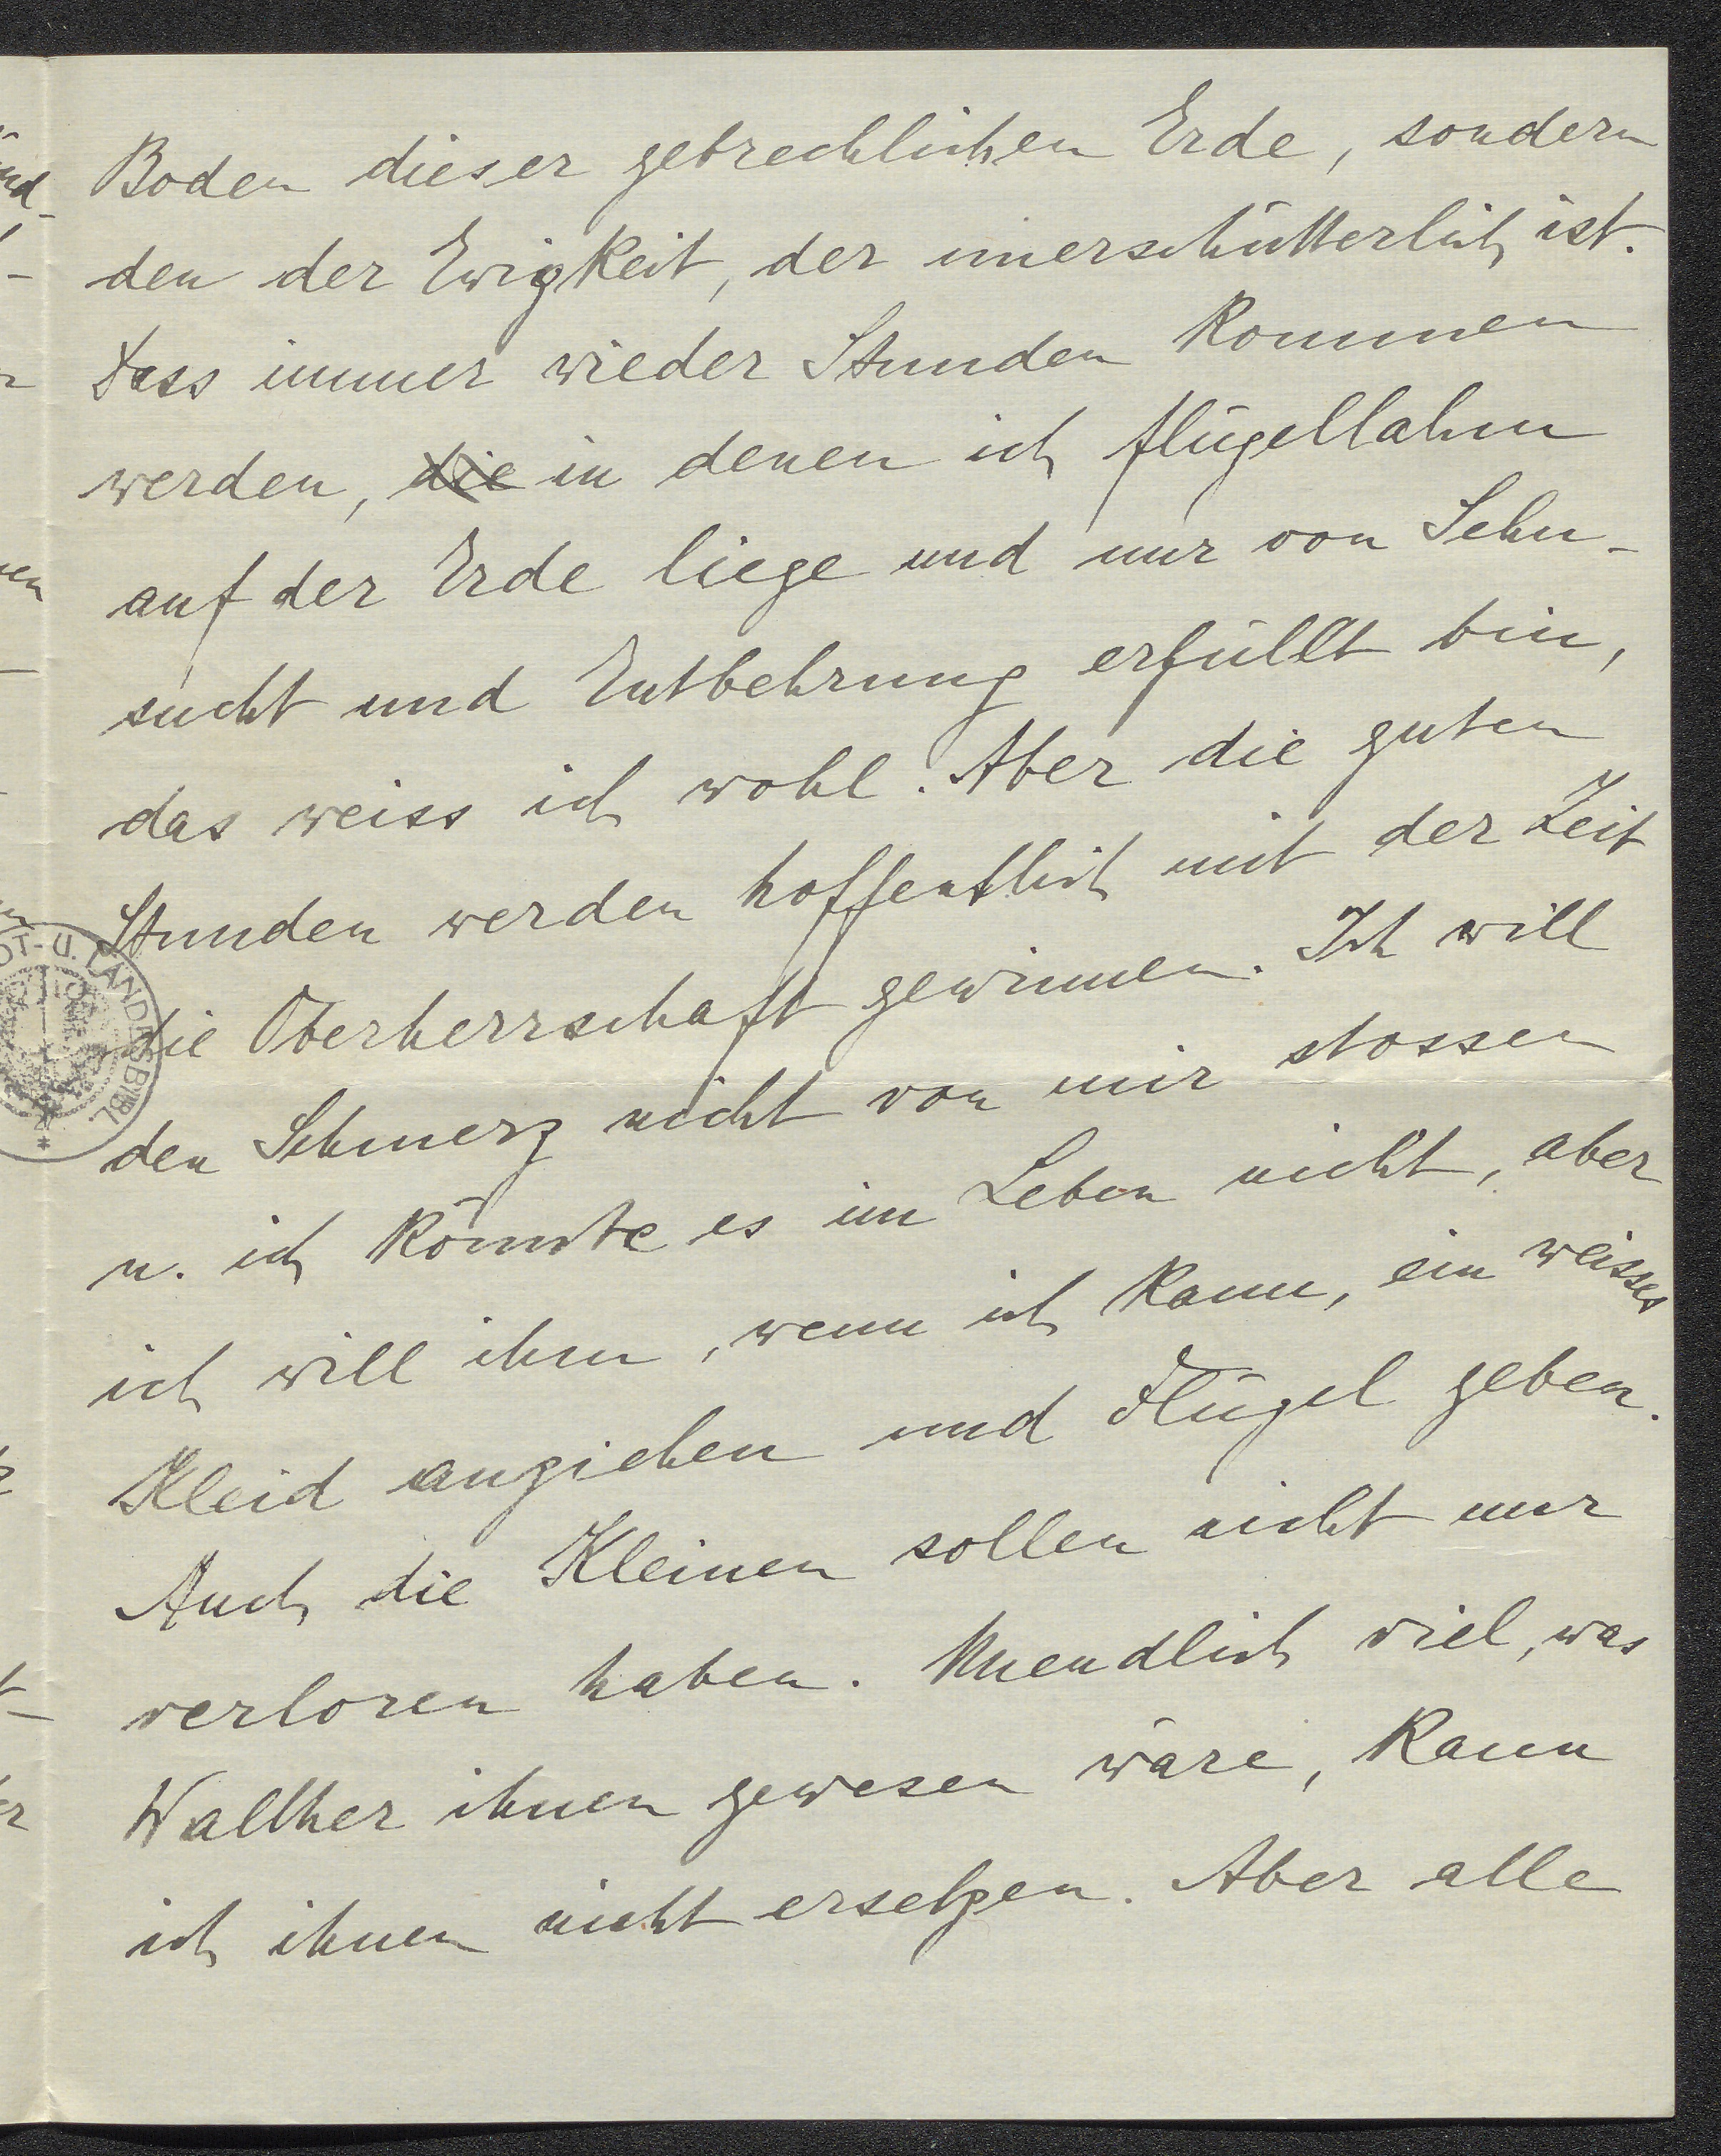 Boden dieser gebrechlichen Erde, sondern
den der Ewigkeit, der unerschütterlich ist.
Dass immer wieder Stunden kommen
werden, die in denen ich flügellahm
auf der Erde liege und nur von Sehn-
sucht und Entbehrung erfüllt bin,
das weiss ich wohl. Aber die guten
Stunden werden hoffentlich mit der Zeit
die Oberherrschaft gewinnen. Ich will
den Schmerz nicht von mir stossen
u. ich könnte es im Leben nicht, aber
ich will ihm, wenn ich kann, ein weisses
Kleid anziehen und Flügel geben.
Auch die Kleinen sollen nicht nur
verloren haben. Unendlich viel, was
Walther ihnen gewesen wäre, kann
ich ihnen nicht ersetzen. Aber alle
U. LANDESBIBL.